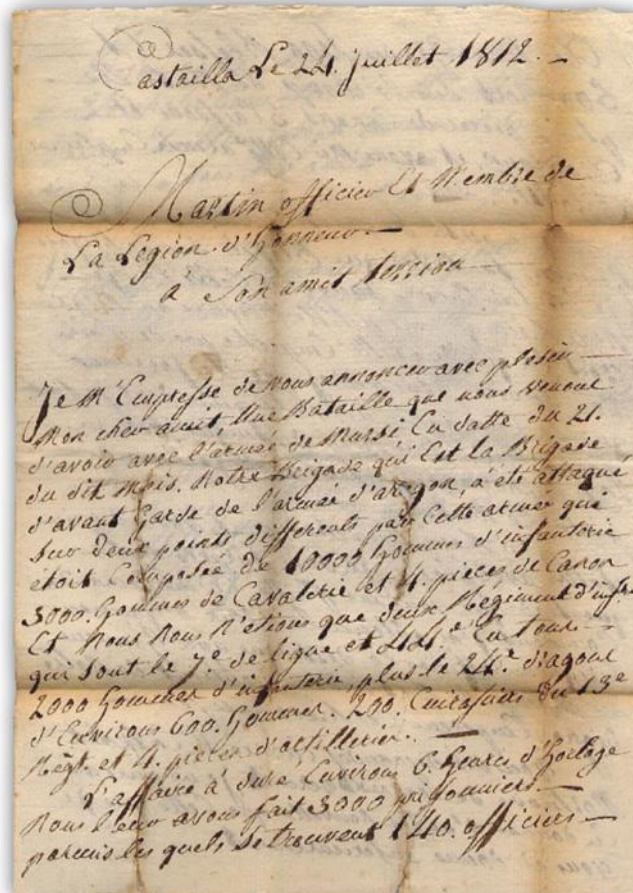 Castailla Le 24. juillet 1812. —
Martin officier Et Membre de
La Legion d'honneur —
à Son amit
Je M'Empresse de vous annoncer avec plesir —
Mon cher amit, Une Bataille que nous venons
d'avoir avec l'armée de Mursi En datte du 21.
du dit mois. Notre Brigade qui Est la Brigade
d'avant Garde de l'armée d'aragon, à été attaqué
sur deux points differents par Cette armée qui
étoit Composée de 10000 hommes d'infanterie
3000. hommes de Cavalerie et 4. pieces de Canon
Et Nous Nous N'etions que deux Regiment d'infrie
qui sont le 7e de ligne et 44e En tout —
2000 hommes d'infanterie, plus le 24e dragons
d'Environs 600. hommes. 200. Cuirassiers du 13e
Regt. et 4. pieces d'artillerie. —
L'affaire à duré Environs 6. heures d'horloge
Nous leur avons fait 3000 prisonniers —
parmis les quels se trouvent 140. officiers —